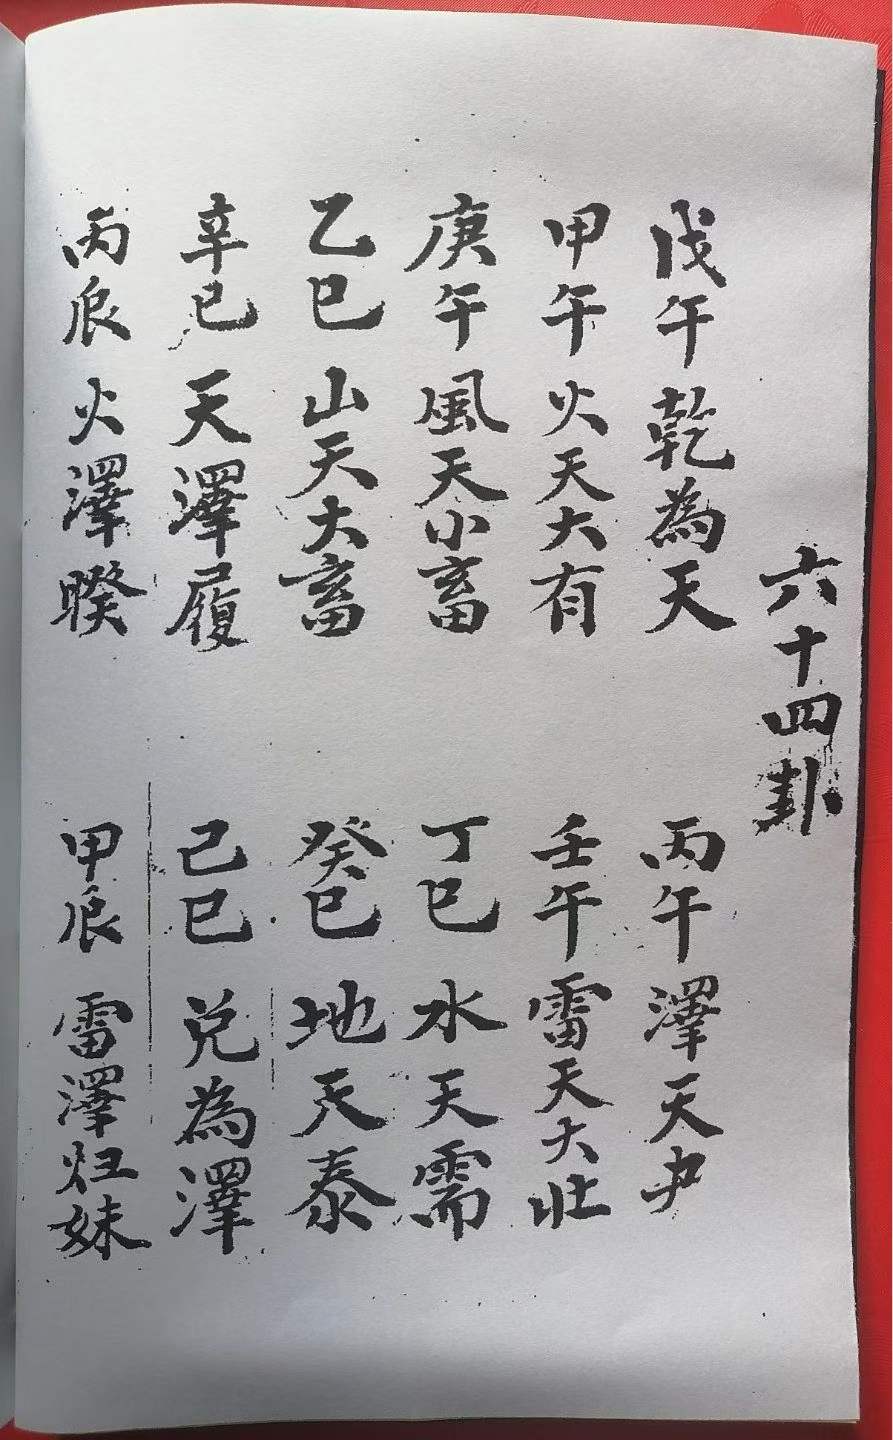 六十四卦
戊午 乾為天 丙午 澤天夬
甲午 火天大有 壬午 雷天大壯
庚午 風天小畜 丁巳 水天需
乙巳 山天大畜 癸巳 地天泰
辛巳 天澤履 己巳 兑為澤
丙辰 火澤暌 甲辰 雷澤归妹